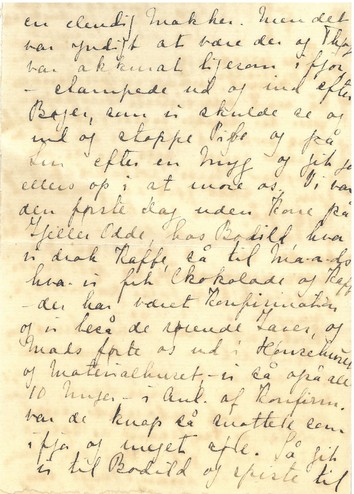 en elendig Makker. Men det
var yndigt at være der og Thy
var akkurat ligesom i fjor
- stampede ud og ind efter
Bøger, som vi skulde se og
ind og stoppe Pibe og på
efter en Myg og gik
ellers op i at more os. Vi var
den første dag uden Kone på
Odde, hos Bodild, hvor
vi drak Kaffe, så til Mads
hvor vi fik Chokolade og Kaffe
- der har været Konfirmation
og vi beså de Gaver, og
Mads førte os ud i Hønsehuset
og Materialhuset - vi så også alle
10 Unger - i Anl. af Konfirm.
var de knap så snottede som
i fjor og meget . Så gik
vi til Bodild og spiste til